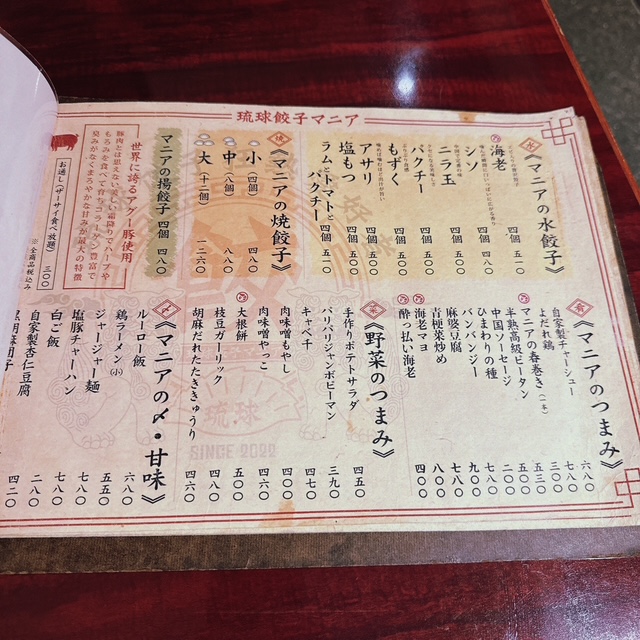 琉球餃子マニア
《マニアの水餃子》
海老 四個 五〇〇
シソ 四個 五〇〇
ニラ玉 四個 四五〇
パクチー 四個 五〇〇
もずく 四個 五〇〇
アサリ 四個 五一〇
塩もつ 四個 五〇〇
ラムとトマトとパクチー 四個 五一〇
《マニアの焼餃子》
小(四個) 四八〇
中(八個) 八八〇
大(十二個) 一二六〇
マニアの揚餃子 四個 四八〇
世界に誇るアグー豚使用
豚肉とは思えない美しい霜降りでハーブや
もろみを食べて育ちコラーゲン豊富で
臭みがなくまろやかな甘みが最大の特徴
お通し(ザーサイ食べ放題) 三〇〇
※全商品税込み
《マニアのつまみ》
自家製チャーシュー 六八〇
よだれ鶏 七八〇
マニアの春巻き(一本)
半熟高級ピータン
中国ソーセージ
ひまわりの種
バンバンジー
麻婆豆腐
青梗菜炒め
海老マヨ
酔っ払い海老
《野菜のつまみ》
手作りポテトサラダ 四五〇
バリバリジャンボピーマン 三九〇
キャベ千 四七〇
肉味噌もやし 四〇〇
肉味噌やっこ 四六〇
大根餅 五〇〇
枝豆ガーリック 四八〇
胡麻だれたたききゅうり 四六〇
《マニアの〆・甘味》
ルーロー飯 六八〇
鶏ラーメン(小) 五五〇
ジャージャー麺 七八〇
塩豚チャーハン 七八〇
白ご飯 二八〇
自家製杏仁豆腐 四二〇
琉球
SINCE 2022